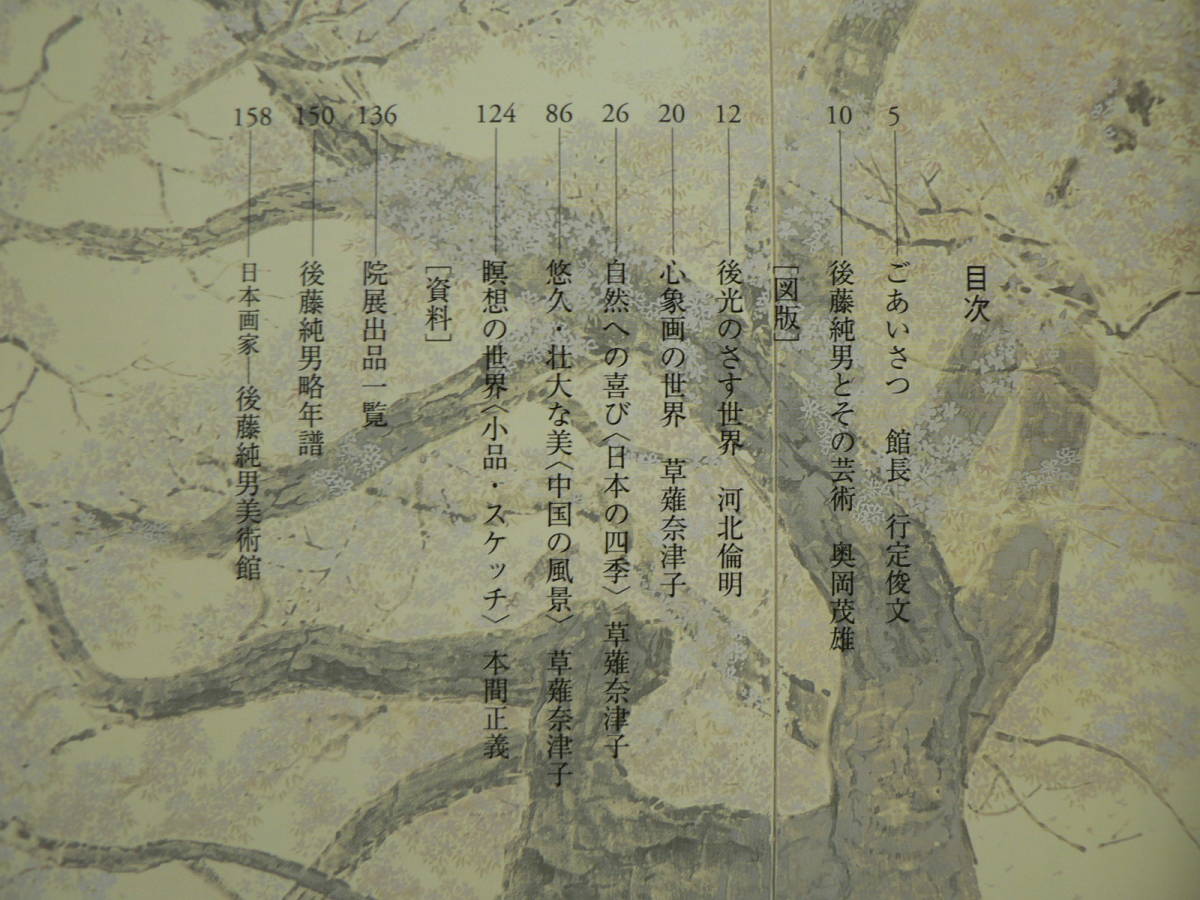 目次
5 ごあいさつ 館長 行定俊文
10 後藤純男とその芸術 奥岡茂雄
[図版]
12 後光のさす世界 河北倫明
20 心象画の世界 草薙奈津子
26 自然への喜び〈日本の四季〉 草薙奈津子
86 悠久・壮大な美〈中国の風景〉 草薙奈津子
124 瞑想の世界〈小品・スケッチ〉 本間正義
[資料]
136 院展出品一覧
150 後藤純男略年譜
158 日本画家―後藤純男美術館